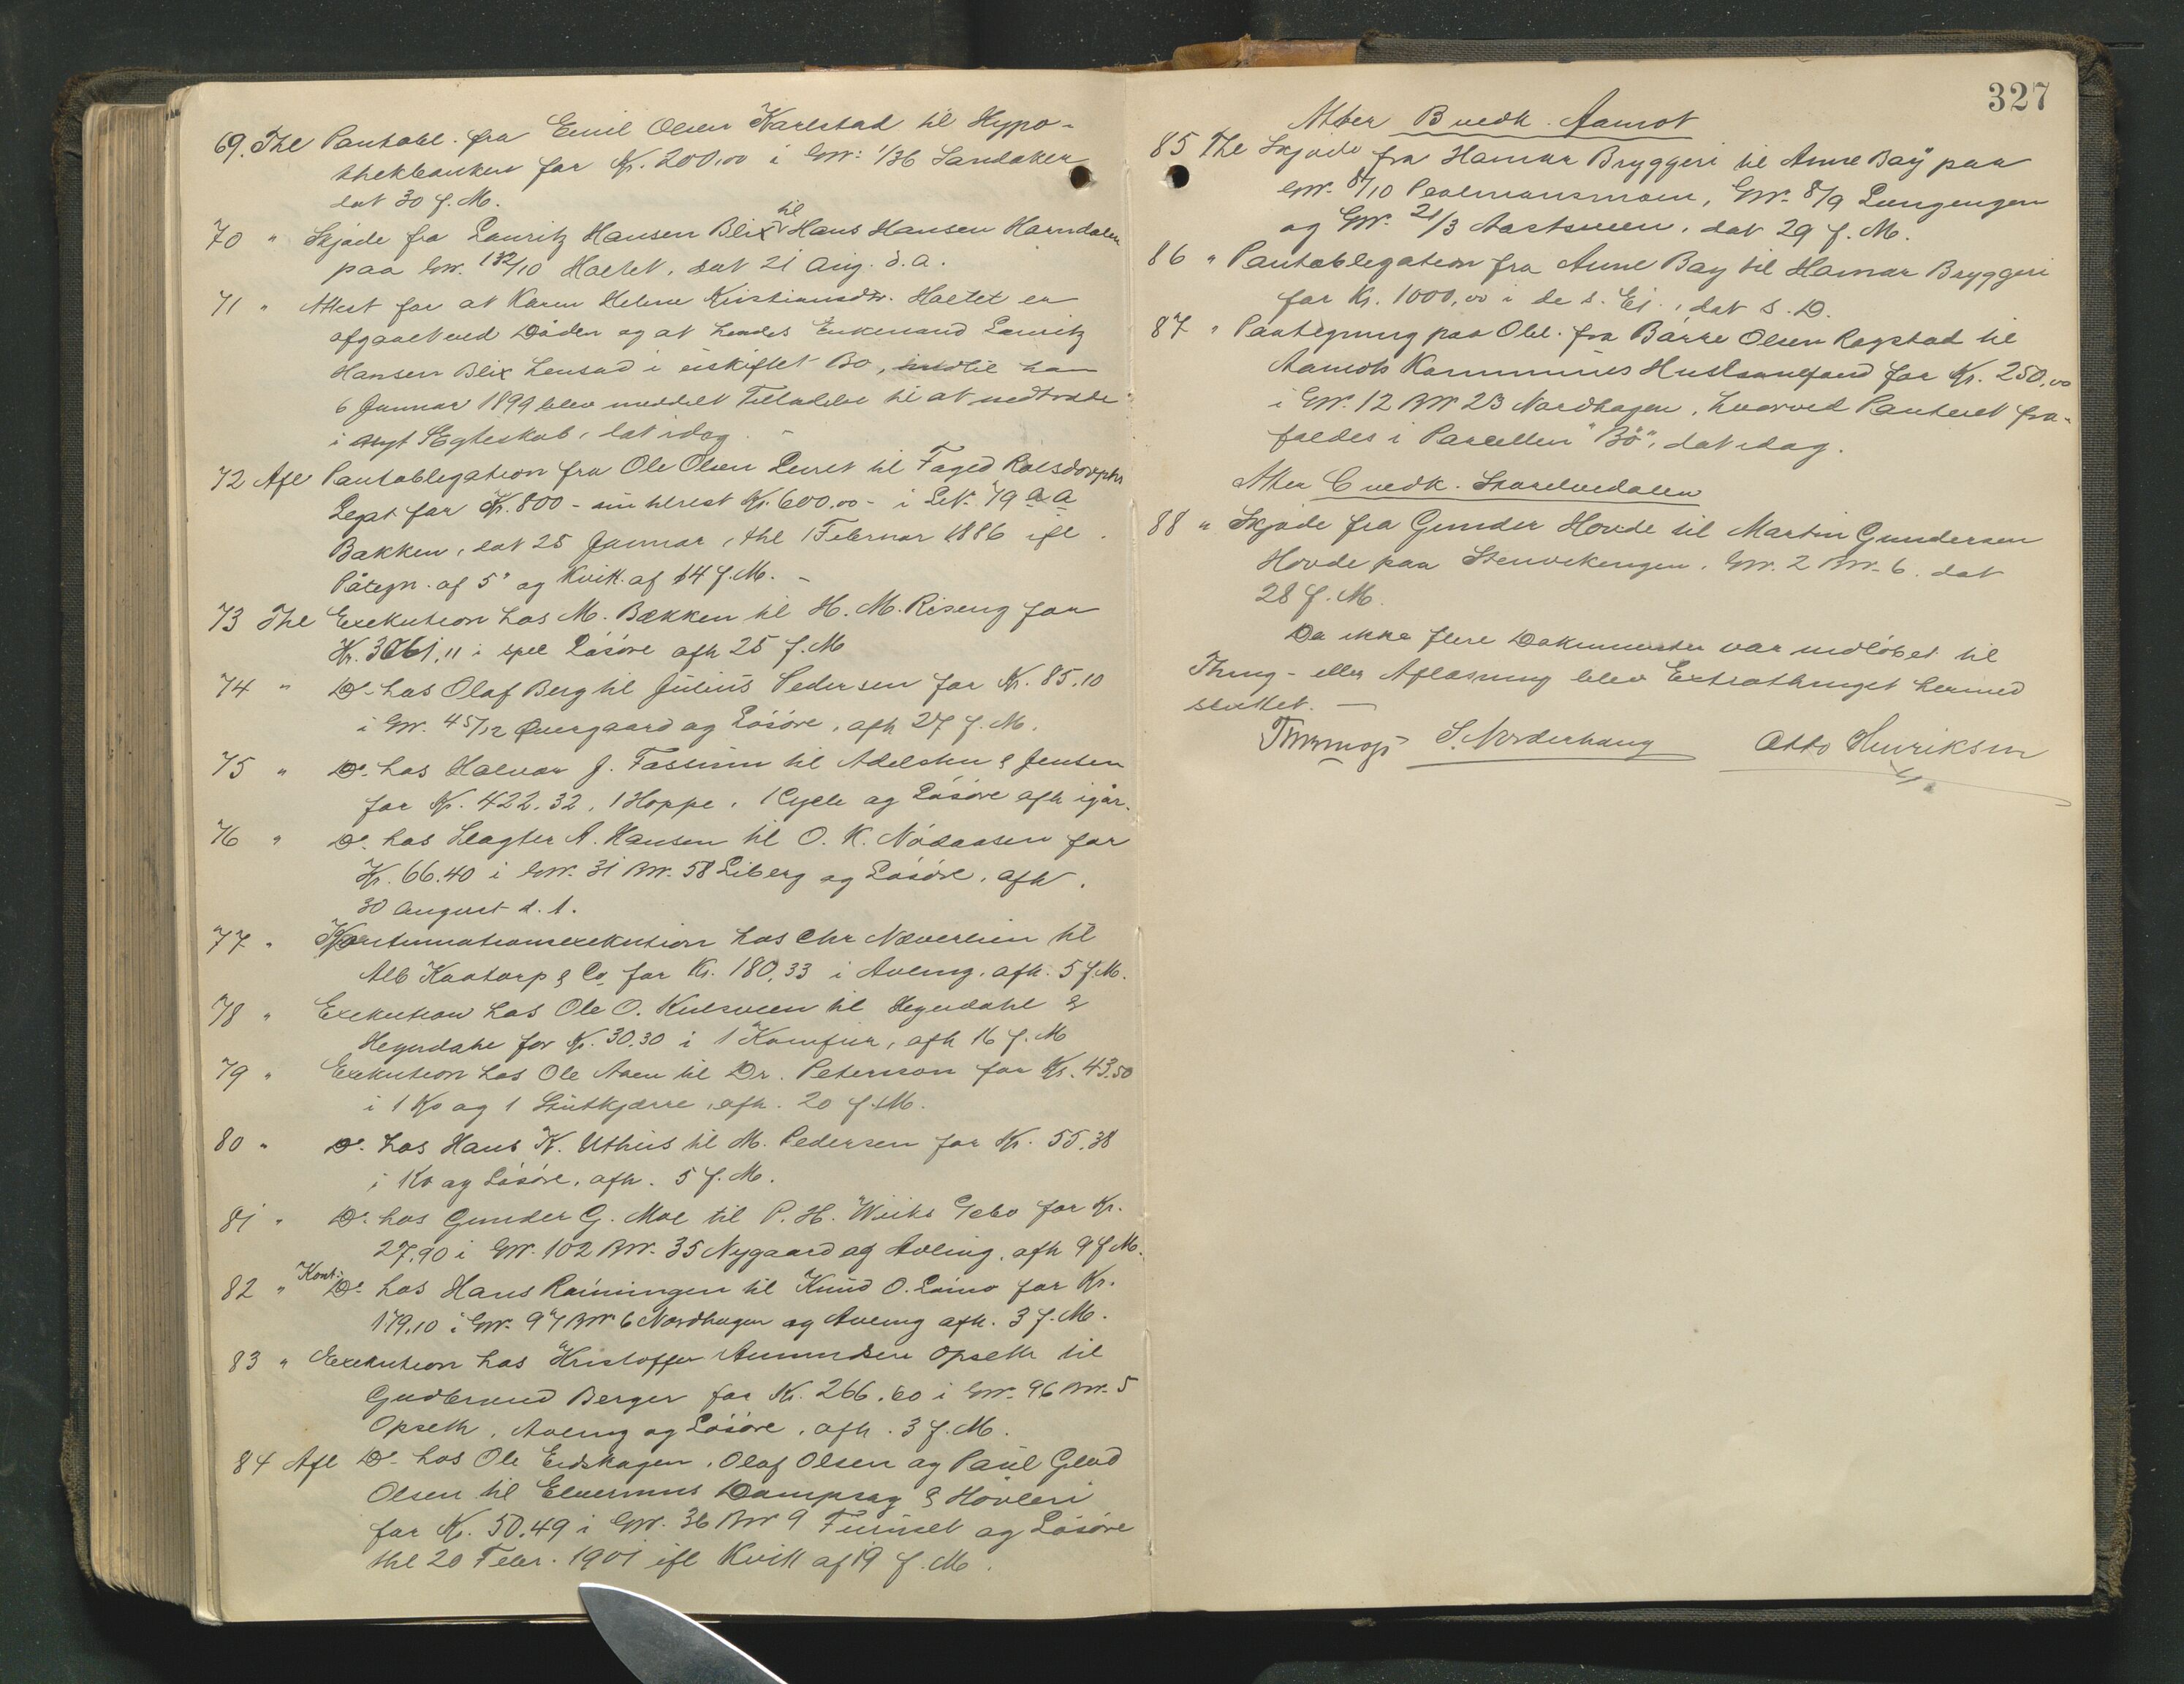 69. Thl Pantobl. fra Emil Olsen Karlstad til Hypo-
thekbanken for Kr. 200,00 i GNr: 1/36 Sandaker
dat 30 f. M.
70 " Skjøde fra Lauritz Hansen Blix til Hans Hansen Harndalen
paa GNr. 132/10 Holtet, dat 21 Aug. d. a.
71 " Attest for at Karen Helene Kristiansdtr. Holtet er
afgaaet ved Døden og at hendes Enkemand Lauritz
Hansen Blix hensad i uskiftet Bo, indtil han
6 Januar 1899 blev meddelt Tilladelse til at indtræde
i nyt Ægteskab, dat idag. -
72 Afl Pantobligation fra Ole Olsen til Foged Rolsdorphs
Legat for Kr. 800 - nu tilrest Kr. 600,00 - i LNr. 79 a a
Bakken, dat 25 Januar, thl 1 Februar 1886 ifl.
Påtegn. af 5' og Kvitt. af 14 f. M. -
73 Thl Exekution hos M. Bækken til H. M. Riseng for
Kr. 3061,11 i Løsøre afh 25 f. M
74 " Do. hos Olaf Berg til Julius Pedersen for Kr. 85,10
i GNr. 45/12 Øvergaard og Løsøre, afh 27 f. M.
75 " Do. hos Halvor J. Fossum til Adelsten & Jensen
for Kr. 422,32, 1 Hoppe, 1 Cycle og Løsøre afh igår.
76 " Do. hos Slagter A. Hansen til O. K. Nødaasen for
Kr. 66.40 i GNr. 31 BNr. 58 Liberg og Løsøre, afh.
30 August d. A.
77 " Kontinuationsexekution hos Chr Næverlien til
Alb Kaatorp & Co for Kr. 180,33 i Avling, afh. 5 f. M.
78 " Exekution hos Ole O. Kulsveen til Hegerdahl &
Hegerdahl for Kr. 30.30 i 1 Komfur, afh 16 f. M
79 " Exekution hos Ole Aaen til Dr. Peterson for Kr. 43.50
i 1 Ko og 1 Stutkjærre, afh. 20 f. M.
80 " Do. hos Hans K. Uthus til M. Pedersen for Kr. 55.38
i 1 Ko og Løsøre, afh. 5 f. M.
81 " Do. hos Gunder G. Moe til P. H. Wiiks for Kr.
27,90 i GNr. 102 BNr. 35 Nygaard og Avling, afh 9 f M.
82 " Kont: Do. hos Hans Rønningen til Knud O. for Kr.
179,10 i GNr. 97 BNr 6 Nordhagen og Avling afh. 3 f. M.
83 " Exekution hos Kristoffer Amundsen Opseth til
Gudbrand Berger for Kr. 266,60 i GNr. 96 BNr. 5
Opseth, Avling og Løsøre, afh. 3 f. M.
84 Afl Do. hos Ole Eidskogen, Olaf Olsen og Paul Glad
Olsen til Elverums Dampsag & Høvleri
for Kr. 50.49 i GNr. 36 BNr 9 Furuset og Løsøre
thl 20 Febr. 1901 ifl Kvitt af 19 f. M.
327
Atter B vedk. Aamot
85 Thl Skjøde fra Hamar Bryggeri til Anne Bay paa
GNr. 8/10 Paalmansmoen, GNr. 8/9 Lungengen
og GNr. 21/3 dat 29 f. M.
86 " Pantobligation fra Anne Bay til Hamar Bryggeri
for Kr. 1000,00 i de s. Ej., dat s. D.
87 " Paategning paa Obl. fra Bårre Olsen Rogstad til
Aamots Kommunes Huslaanefond for Kr. 250,00
i GNr. 12 BNr 23 Nordhagen, hvorved Panteret fra-
faldes i Parcellen "Bö", dat idag.
Atter C vedk. Storelvedalen
88 " Skjøde fra Gunder Hovde til Martin Gundersen
Hovde paa Stenvikengen, GNr. 2 BNr. 6. dat
28 f. M.
Da ikke flere Dokumenter var indløbet til
Thing- eller Aflæsning blev Extrathinget hermed
sluttet. -
S. Norderhaug Otto Henriksen